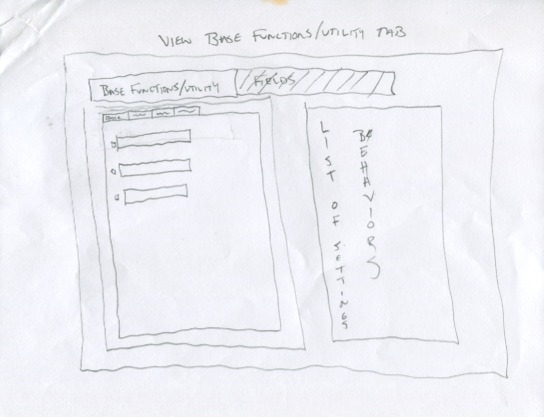 VIEW BASE FUNCTIONS/UTILITY TAB
BASE FUNCTIONS/UTILITY
FIELDS
LIST OF SETTINGS
BEHAVIORS